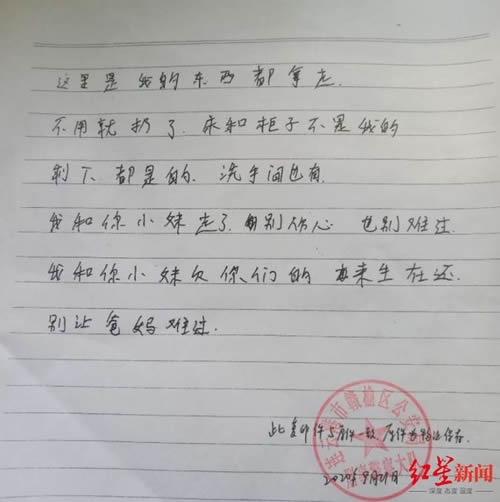 这里是我的东西都拿走.
不用就扔了.床和柜子不是我的
剩下都是的.洗手间也有.
我和你小妹走了.别伤心 也别难过.
我和你小妹欠你们的 来生在还.
别让爸妈难过.
连云港市赣榆区公安局
刑事警察大队
此复印件与原件一致,原件为物证保存.
2020年9月21日
红星新闻
深度 态度 温度